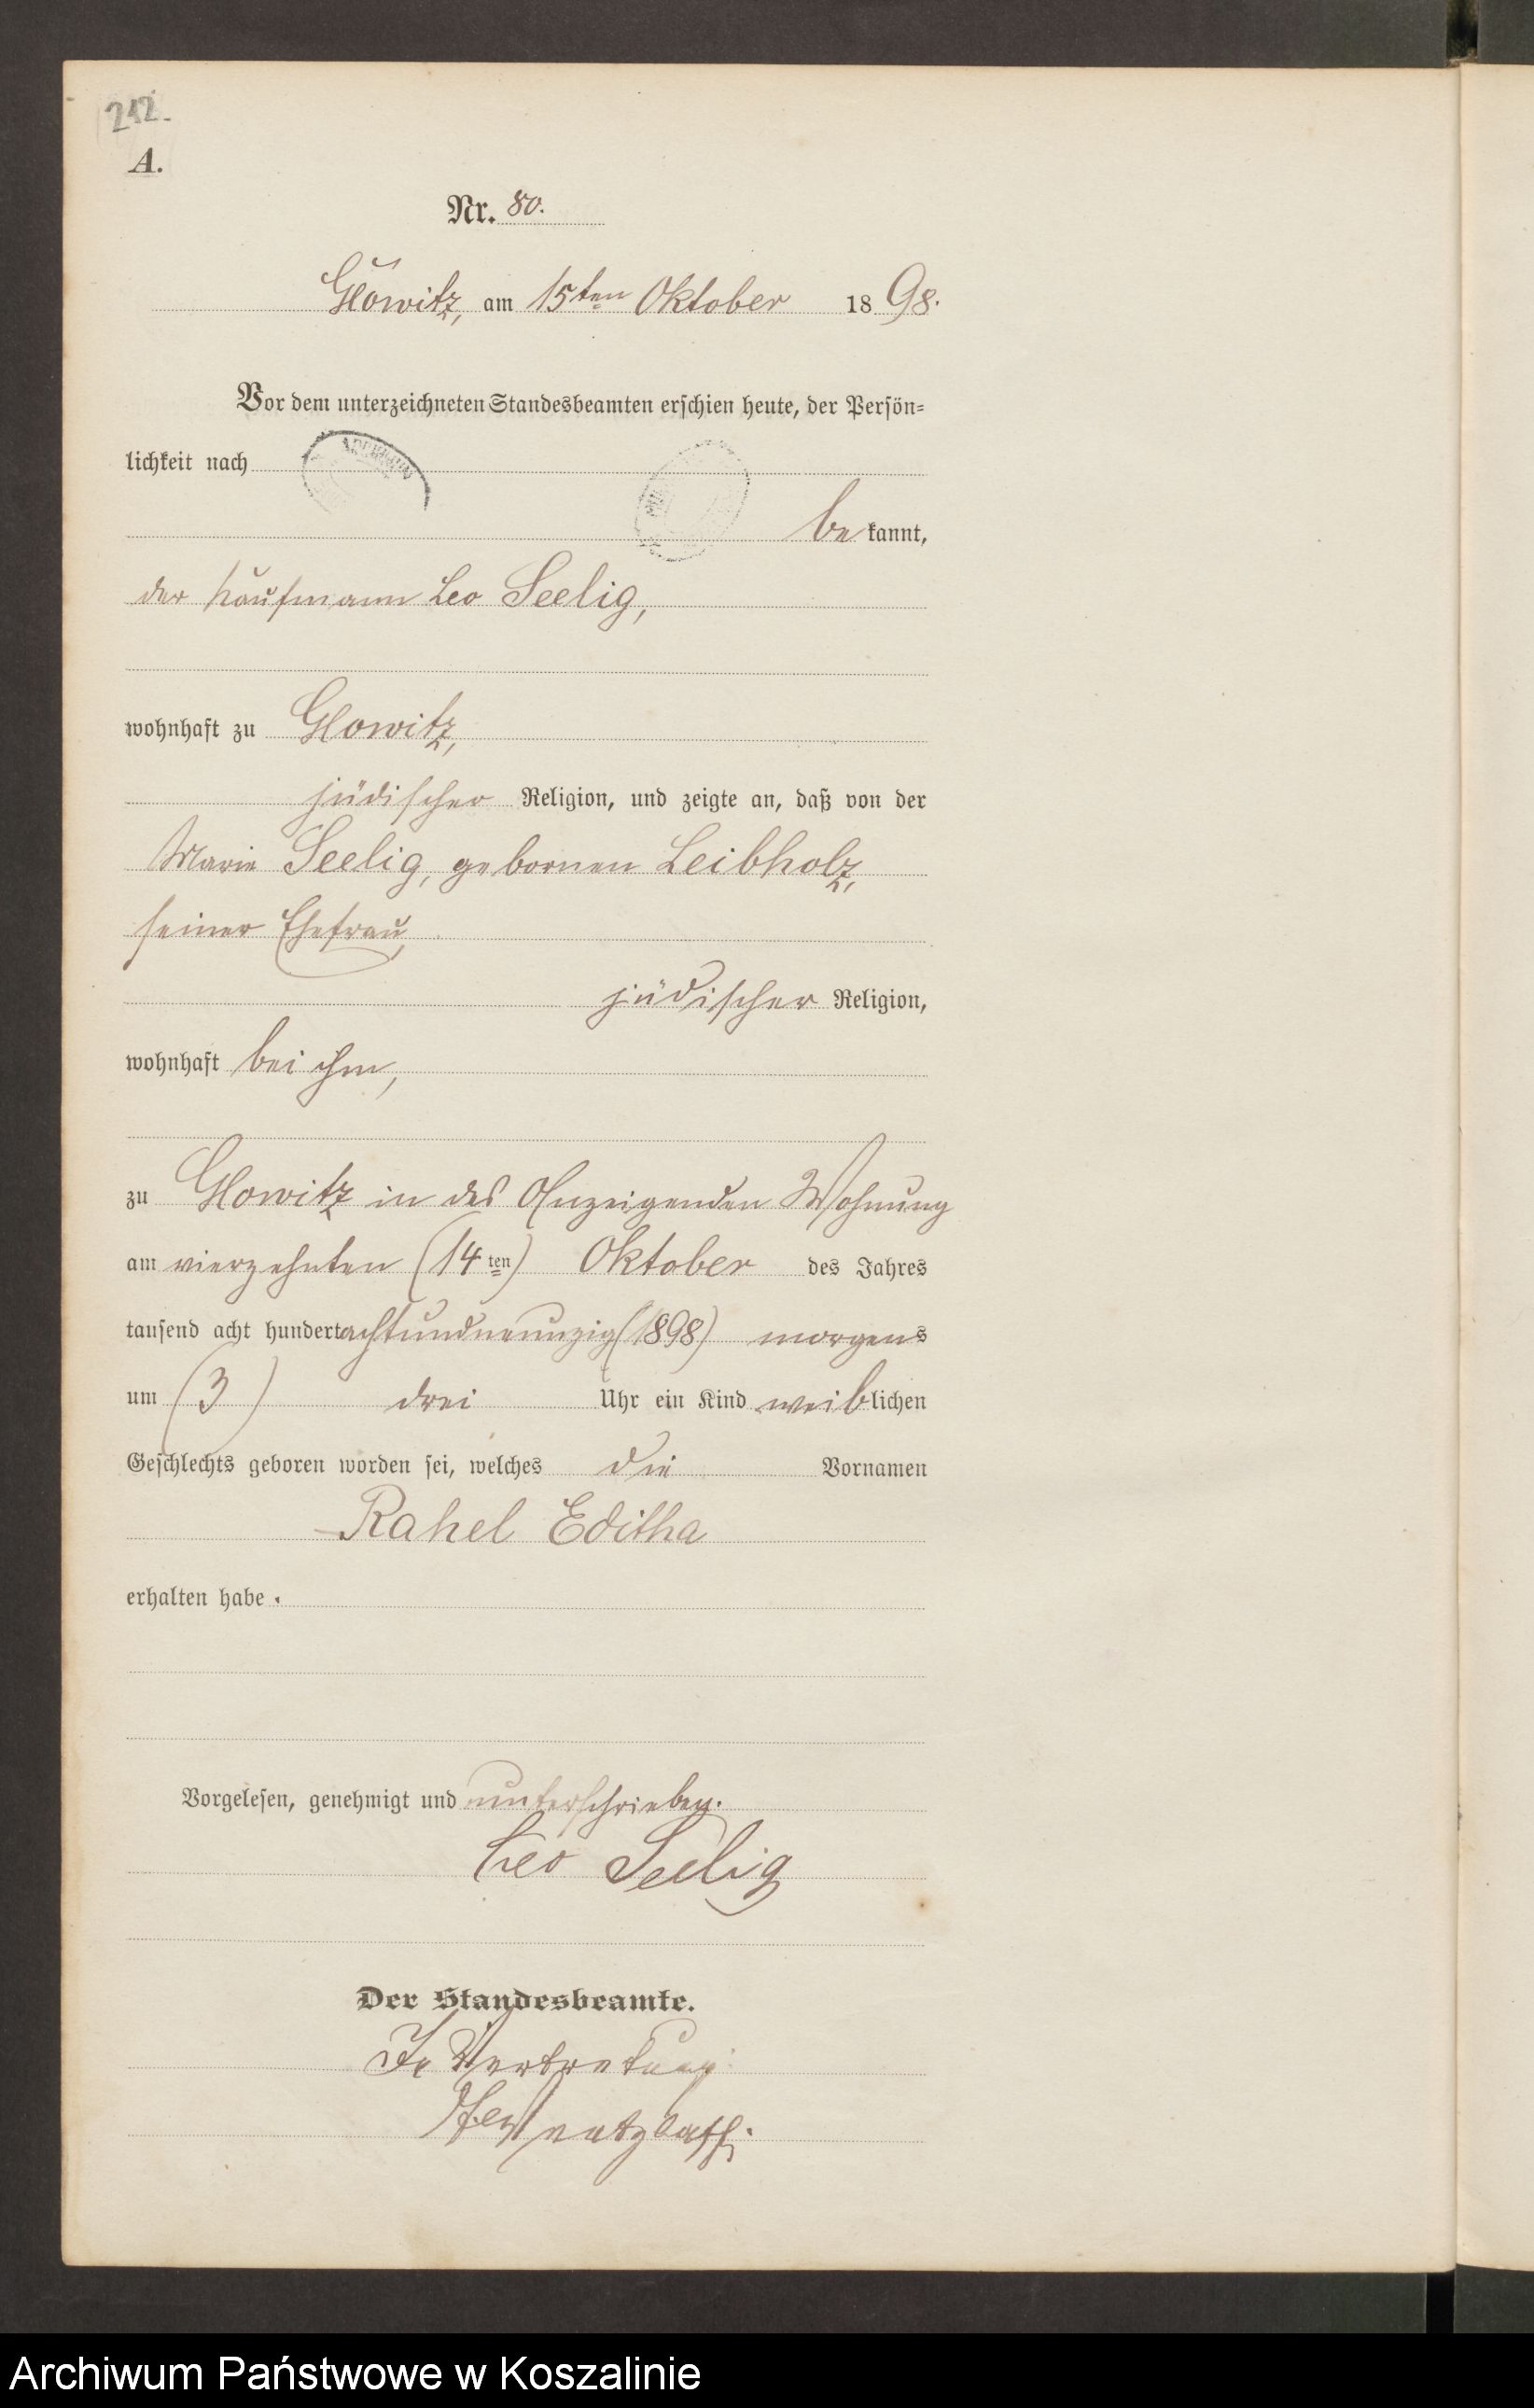 212.
A.
Nr. 80.
Glowitz, am 15ten Oktober 1898.
Vor dem unterzeichneten Standesbeamten erschien heute, der Persön=
lichkeit nach
bekannt,
der Kaufmann Leo Seelig,
wohnhaft zu Glowitz,
jüdischer Religion, und zeigte an, daß von der
Marie Seelig, gebornen Leibholz,
seiner Ehefrau,
jüdischer Religion,
wohnhaft bei ihm,
zu Glowitz in des Anzeigenden Wohnung
am vierzehnten (14ten) Oktober des Jahres
tausend acht hundert achtundneunzig (1898) morgens
um (3) drei Uhr ein Kind weiblichen
Geschlechts geboren worden sei, welches die Vornamen
Rahel Editha
erhalten habe.
Vorgelesen, genehmigt und unterschrieben.
Leo Seelig
Der Standesbeamte.
In Vertretung
Archiwum Państwowe w Koszalinie